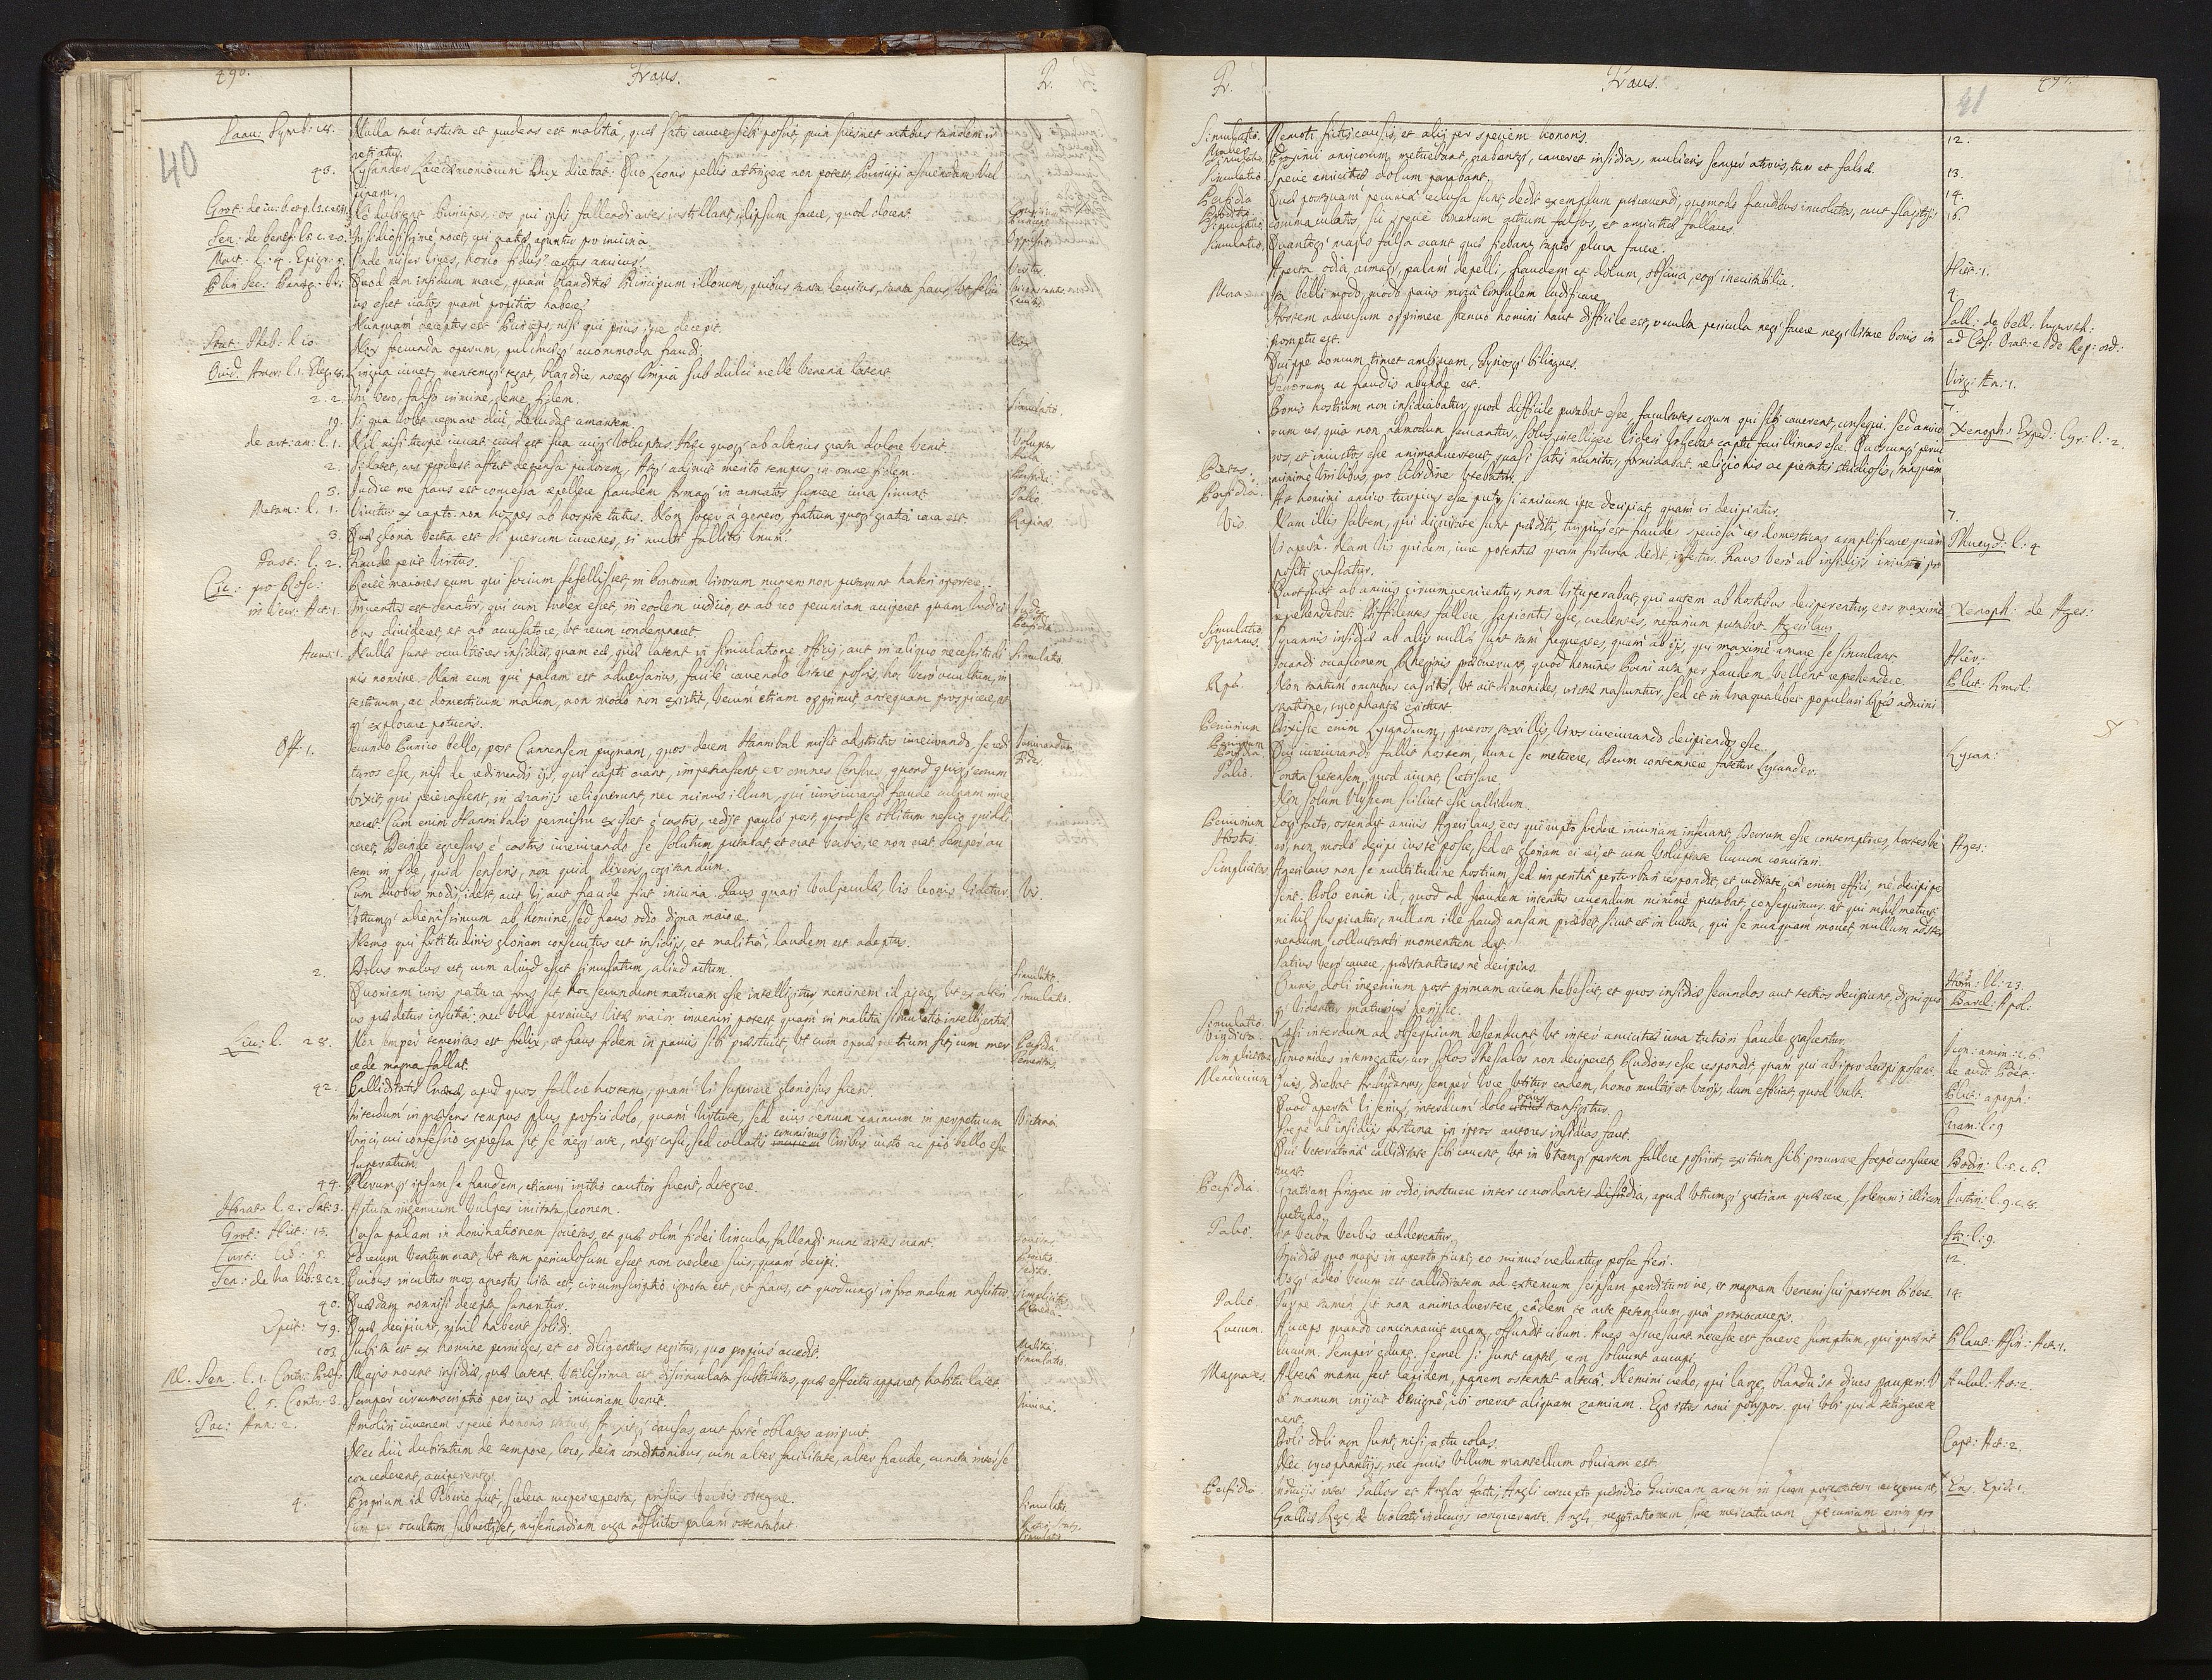 490.
Fraus.
Fr.
40
Saau: Symb: 28. Nulla tam astuta et prudens est malitia, quae satis cavere sibi possit, quin suismet artibus tandem ir
retiatur.
43. Lysander Lacedaemoniorum Dux dicebat: Quo Leonis pellis attingere non potest, Principi assuendam vul
pinam.
Ne dubitent Principes, eos qui ipsis fallendi artes instillant, id ipsum facere, quod docent
Sen: de benef: l. c. 20. Insidiosissime nocet, qui gratias aguntur pro iniuria.
Mart: l. 4. Epigr: 5. Unde miser vives, homo fidus certus amicus.
Plin Sec: Paneg: Quod tam infidum mare, quam blanditiae Principum illorum, quibus tanta levitas, tanta fraus, ut facilius
esset iratos quam propitios habere.
Nunquam deceptus est Princeps, nisi qui prius ipse decepit.
Stat: Theb: l. 10. Nox foecunda operum, pulchraeq accommoda fraudi.
Nox.
Ovid. Amor: l. 1. Eleg: 8. Lingua iuvet, mentemq tegat, blandire, noceq Impia sub dulci melle venena latent
2. 2. In vero, falso crimine, deme fidem.
Simulatio.
19. Si qua volet regnare diu, deludat amantem.
de art: am: l. 1. Nil nisi turpe iuvat: curae est sua cuiq voluptas. Haec quoq ab alterius grata dolore venit.
Voluptas.
2. Si latet, ars prodest: affert deprensa pudorem, Atq adimit merito tempus in omne fidem.
3. Iudice me fraus est concessa repellere fraudem Armaq in armatos sumere iura sinunt
Talio.
Metam: l. 1. Vivitur ex rapto: non hospes ab hospite tutus. Non socer a genero, fratrum quoq gratia rara est.
Rapina.
3. Quae gloria vestra est si puerum iuvenes, si multi fallitis unum.
Fast: l. 2. Fraude perit virtus.
Cic: pro Rosc: Recte maiores eum qui socium fefellisset, in bonorum virorum numero non putarunt haberi oportere.
in Verr: Act: 1. Inventus est senator, qui cum Iudex esset, in eodem iudicio, et ab reo pecuniam acciperet quam Iudici
bus divideret, et ab accusatore, ut reum condemnaret.
Iudex.
Perfidia.
Nullae sunt occultiores insidiae, quam eae, quae latent in simulatione officij, aut in aliquo necessitudi
nis nomine. Nam eum qui palam est adversarius, facile cavendo vitare possis, hoc vero occultum, in
testinum, ac domesticum malum, non modo non existit, verum etiam opprimit, antequam prospicere, at
q explorare potueris.
Simulatio.
Off: 1. Secundo Punico bello, post Cannensem pugnam, quos decem Hannibal misit adstrictos iureiurando, se redi
turos esse, nisi de redimendis ijs, qui capti erant, impetrassent eos omnes Censores, quoad quisq eorum
vixit, qui peierassent, in aerarijs reliquerunt, nec minus illum, qui iurisiurandi fraude culpam inve
nerat. Cum enim Hannibalis permissu exisset e castris, redijt paulo post, quod se oblitum nescio quid di
ceret. Deinde egressus e castris iureiurando se solutum putabat, et erat verbis, re non erat. Semper au
tem in fide, quid senseris, non quid dixeris, cogitandum.
Iusiurandum.
Fides.
Cum duobus modis, id est, aut vi, aut fraude fiat iniuria. Fraus quasi vulpeculae, vis leonis videtur
utrumq alienissimum ab homine, sed fraus odio digna maiore.
Vis.
Nemo qui fortitudinis gloriam consecutus est insidijs, et malitia, laudem est adeptus.
Dolus malus est, cum aliud esset simulatum, aliud actum.
2. Quoniam iuris natura fons sit hoc secundum naturam esse intelligitur neminem id agere ut ex alteri
us praedetur inscitia: nec ulla pernicies vitae maior inveniri potest quam in malitia simulatio intelligentiae.
Simulatio.
Liv: l. 28. Non semper temeritas est foelix, et fraus fidem in parvis sibi praestruit, ut cum operae pretium sit, cum mer
cede magna fallat.
Perfidia.
Temeritas.
42. Calliditatis Graecae, apud quos fallere hostem, quam vi superare gloriosius fuerit.
Interdum in praesens tempus plus profici dolo, quam virtute, sed eius demum animum in perpetuum
vinci, cui confessio expressa sit se neq arte, neq casu, sed collatis comminus viribus iusto ac pio bello esse
superatum.
Victoria.
44. Plerumq ipsam se fraudem, etiamsi initio cautior fuerit, detegere.
Horat: l. 2. Sat: 3. Astuta ingenuum vulpes imitata leonem.
Grot: Hist: 15. Versa palam in dominationem societas, et quae olim fidei vincula, fallendi nunc artes erant.
Curt: lib: 5. Eo rerum ventum erat, ut tam periculosum esset non credere suis, quam decipi.
Sen: de Ira lib: 3. c. 2. Quibus incultus mos, agrestis vita est, circumscriptio ignota est, et fraus, et quodcunq in foro malum nascitur.
Simplicitas.
40. Quaedam nonnisi decepta sanantur.
Epist: 79. Quae decipiunt, nihil habent solidi.
103. Subita est ex homine pernicies, et eo diligentius tegitur, quo propius accedit.
M. Sen. l. 1. Contr: Praef: Magis nocent insidiae, quae latent. Utilissima est dissimulata subtilitas, quae effectu apparet, habitu latet.
Simulatio.
l. 5. Contr: 3. Semper circumscriptio per ius ad iniuriam venit.
Tac: Ann: 2. Amoliri iuvenem specie honoris statuit, struxitq causas, aut forte oblatas arripuit.
Nec diu dubitatum de tempore, loco, dein conditionibus, cum alter facilitate, alter fraude, cuncta inter se
concederent, acciperentq.
4. Proprium id Tiberio fuit, scelera nuper reperta, priscis verbis obtegere.
Cum per occultum subverteret, misericordiam erga afflictos palam ostentabat.
Simulatio.
Fr.
Fraus.
41
491.
Simulatio. Remoti fictis causis, et alij per speciem honoris. 12.
Proximi amicorum metuebant, trahentes, caveret insidias, mulieris semper atrocis, tum et falsae. 13.
Simulatio. Specie amicitiae dolum parabant. 14.
Perfidia. Quae postquam pecunia reclusa sunt dedit exemplum praecavendi, quomodo fraudibus involutos, aut flagitijs
commaculatos, sic specie bonarum artium falsos, et amicitiae fallaces. 16.
Simulatio. Quantoq magis falsa erant quae fiebant, tanto plura facere.
Aperta odia, armaq, palam depelli, fraudem et dolum, obscura, eoq inevitabilia. Hist: 1.
Mora. Ita belli modo, modo pacis mora Consulem ludificare. 4.
Hostem adversum opprimere strenuo homini haut difficile est, occulta pericula neq facere neq vitare bonis in
promptu est.
Sall: de bell: Iugurth:
ad Caes: Orat: de Rep: ord:
Quippe domum timet ambiguam, Tyriosq bilingues. Virg: Aen: 1.
Terrorum ac fraudis abunde est. 7.
Bonis hostium non insidiabatur, quod difficile putabat esse, facultates eorum qui sibi caverent, consequi. Sed amico
rum res, quia non admodum servantur, solus intelligere videri volebat captu facillimas esse. Quoscunq periu
ros, et iniustos esse animadverteret, quasi satis munitos, formidabat. religionis ac pietatis studiosis, tanquam
minime virilibus, pro libidine utebatur.
Xenoph: Exped: Cyr: l: 2.
Pietas.
Perfidia. At homini amico turpius esse puto, si amicum ipse decipiat, quam si decipiatur. 7.
Vis. Nam illis saltem, qui dignitate sunt praediti, turpius est fraude speciosa res domesticas amplificare, quam
vi aperta. Nam vis quidem, iure potentiae quam fortuna dedit infertur. Fraus vero ab insidijs iniusti pro
positi grassatur.
Thucyd: l: 4
Quotquot ab amicis circumvenirentur, non vituperabat, qui autem ab hostibus deciperentur, eos maxime
reprehendebat. Diffidentes fallere sapientis esse, credentes, nefarium putabat Agesilaus.
Xenoph: de Ages:
Simulatio. Tyrannis insidiae ab alijs nullae sunt tam frequentes, quam ab ijs, qui maxime amare se simulant. Hier:
Tyrannus.
Iocandi occasionem Rheginis praebuerunt, quod homines Poeni acta per fraudem vellent reprehendere. Plut: Timol:
Resp. Non tantum omnibus cassitis, ut ait Simonides, cristae nascuntur, sed et in unaqualibet populari Reipub admini
stratione, sycophantae existunt
Periurium. Dixisse enim Lysandrum, pueros taxillis, viros iureiurando decipiendos esse. Lysan:
Qui iureiurando fallit hostem, hunc se metuere, Deum contemnere fatetur Lysander.
Talio. Contra Cretensem, quod aiunt, Cretisare.
Non solum Ulyssem scilicet esse callidum.
Periurium. Eoq facto, ostendit amicis Agesilaus, eos qui rupto foedere iniuriam inferant, Deorum esse contemptores, hostes ve
ro, non modo decipi iuste posse, sed et gloriam ei rei, et cum voluptate lucrum comitari.
Ages:
Hostis.
Simplicitas. Agesilaus non se multitudine hostium, sed imperitia perturbari respondit, et ruditate, ea enim effici, ne decipi pos
sint. Dolo enim id, quod ad fraudem intentis cavendum minime putabat, consequimur. at qui nihil metuit
nihil suspicatur, nullam ille fraudi ansam praebet, sicut et in lucta, qui se nunquam movet, nullum adster
nendum colluctanti momentum dat.
Satius vero cavere, praestantiores ne decipias. Hom: Il: 23.
Omnis doli ingenium post primam aciem hebescit, et quos insidiae secundos aut tertios decipiunt, digni quo
q videntur maturius perijsse.
Barcl: Apol:
Simulatio. Laesi interdum ad obsequium descendunt ut inter amicitiae iura tutiori fraude grassentur. Icon: anim: c. 6.
Vindicta.
Simplicitas. Simonides interrogatus, cur solos Thessalos non deciperet, Rudiores esse respondit quam qui ab ipso decipi possent. de aud: Poet:
Mercurium. Quis, dicebat Archidamus, semper voce utitur eadem, homo multis et varijs, dum efficiat, quod vult. Plut: apoph:
Quod aperta vi serius, interdum dolo ocius transigitur. Gram: l: 9
Saepe ab insidijs fortuna in ipsos autores insidias facit.
Qui veteratoria calliditate sibi cavent, ut in utramq partem fallere possint, exitium sibi procurare saepe consueve
runt.
Bodin: l: 5. c. 6.
Perfidia. Gratiam fingere in odio, instruere inter concordantes odia, apud utrumq gratiam quaerere, solemnis illi con
suetudo.
Iustin: l. 9. c. 8.
Talio. Ut verba verbis redderentur. Str: l: 9.
Insidiae quo magis in aperto fiunt, eo minus creduntur posse fieri. 12.
Usq adeo verum est calliditatem ad extremum seipsam perditum ire, et magnam veneni sui partem bibere. 14.
Talio. Turpe tamen sit non animadvertere, eadem te arte petendum, qua provocaveris.
Lucrum. Auceps quando concinnavit aream, offundit cibum. Aves assuescunt: necesse est facere sumptum, qui quaerit
lucrum. Semper edunt. semel si sunt captae, rem solvunt aucupi.
Plaut: Asin: Act: 1.
Magnates. Altera manu fert lapidem, panem ostentat altera. Nemini credo, qui large blandus est dives pauperi. U
bi manum inijcit benigne, ibi onerat aliquam zamiam. Ego istos novi polypos, qui ubi quid tetigere te
nent.
Aulul: Act: 2.
Doli doli non sunt, nisi astu colas. Capt: Act: 2.
Nec sycophantijs, nec fucis ullum mantellum obviam est.
Perfidia. Inducijs inter Gallos et Anglos factis, Angli corrupto praesidio Guineam arcem in suam potestatem redegerunt,
Gallis Rege, de violatis inducijs conquerente, Angli, negotiationem sive mercaturam pecuniam enim pro
Ens. Epid: 1.